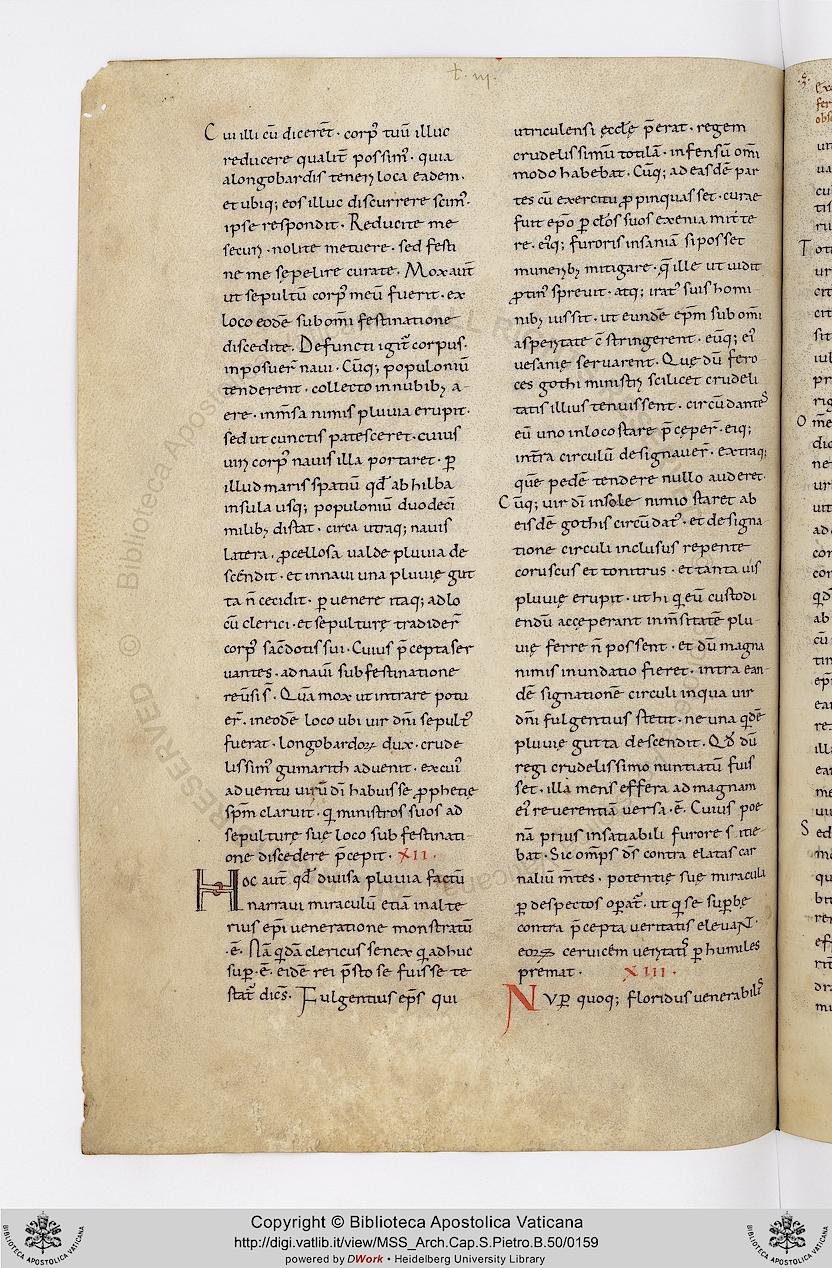 t. iij.
Cui illi cū dicerēt · corp᷒ tuū illuc
reducere qualit̄ possim᷒ · quia
alongobardis tenent᷒ loca eadem ·
et ubiq; eos illuc discurrere scim᷒ ·
ipse respondit · Reducite me
securi · nolite metuere · sed festi
ne me sepelire curate · Mox aūt
ut sepultū corp᷒ meū fuerit · ex
loco eodē sub omi festinatione
discedite · Defuncti igit̄ corpus ·
inposuer̄ naui · Cūq; populoniū
tenderent · collecto in nubibꝫ a-
ere · inm̄sa nimis pluuia erupit ·
sed ut cunctis patesceret · cuius
uiri corp᷒ nauis illa portaret · ꝑ
illud maris spatiū qđ ab hilba
insula usq; populoniū duodeci
milibꝫ distat · circa utraq; nauis
latera · ꝓcellosa ualde pluuia de
scēndit · et in naui una pluuię gut
ta n̄ cecidit · ꝑuenere itaq; ad lo
cū clerici · et sepulturę tradider̄
corp᷒ sac̄dotis sui · Cuius p̄cepta ser
uantes · ad nauī sub festinatione
reūsi s̄ · Quā mox ut intrare potu
er̄ · in eodē loco ubi uir dn̄i sepult᷒
fuerat · longobardoꝝ dux · crude
lissim᷒ gumarith aduenit · ex cui᷒
aduentu uirū dī habuisse ꝓphetię
sp̄m claruit · qi ministros suos ad
sepulturę suę loco sub festinati-
one discedere p̄cepit · XII ·
Hoc aut̄ qđ diuisa pluuia factū
narraui miraculū etiā in alte
rius ep̄i ueneratione monstratū
·ē· Nā qi̇dā clericus senex qi adhuc
sup̄·ē· eidē rei p̄sto se fuisse te
stat̄ dicēs · Fulgentius ep̄s qui
utriculensi ecclę p̄erat · regem
crudelissimū totilā · infensū omi
modo habebat · Cūq; ad easdē par
tes cū exercitu ꝓpinquasset · curae
fuit ep̄o ꝑ cl̄os suos exenia mitte
re · ei᷒q; furoris insaniā si posset
muneribꝫ mitigare · q̄ ille ut uidit
ꝓtin᷒ spreuit · atq; irat᷒ suis homi
nibꝫ iussit · ut eundē ep̄m sub omi
asperitate c̄stringerent · eūq; ei᷒
uesanię seruarent · Quę dū fero
ces gothi ministri scilicet crudeli
tatis illius tenuissent · circūdantes
eū uno in loco stare p̄ceper̄ · eiq;
intra circulū designauer̄ · extra q;
quē pedē tendere nullo auderet ·
Cūq; uir dī in sole nimio staret ab
eisdē gothis circūdat᷒ · et designa
tione circuli inclusus repente
coruscus et tonitrus · et tanta uis
pluuię erupit · ut hi qi eū custodi
endū acceperant inm̄sitatē plu-
uię ferre n̄ possent · et dū magna
nimis inundatio fieret · intra ean
dē signationē circuli in qua uir
dn̄i fulgentius stetit · ne una qi̇dē
pluuię gutta descendit · Qđ dū
regi crudelissimo nuntiatū fuis
set · illa mens effera ad magnam
ei᷒ reuerentiā uersa · ē · Cuius poe
nā prius insatiabili furore sitie
bat · Sic omp̄s d̄s contra elatas car
naliū m̄tes · potentię suę miracula
ꝑ despectos oꝑat̄ · ut qi se suꝑbe
contra p̄cepta ueritatis eleuant ·
eoꝝ ceruicem ueritatis ꝑ humiles
premat · XIII ·
Nuꝑ quoq; floridus uenerabilis
Copyright © Biblioteca Apostolica Vaticana
http://digi.vatlib.it/view/MSS_Arch.Cap.S.Pietro.B.50/0159
powered by DWork • Heidelberg University Library